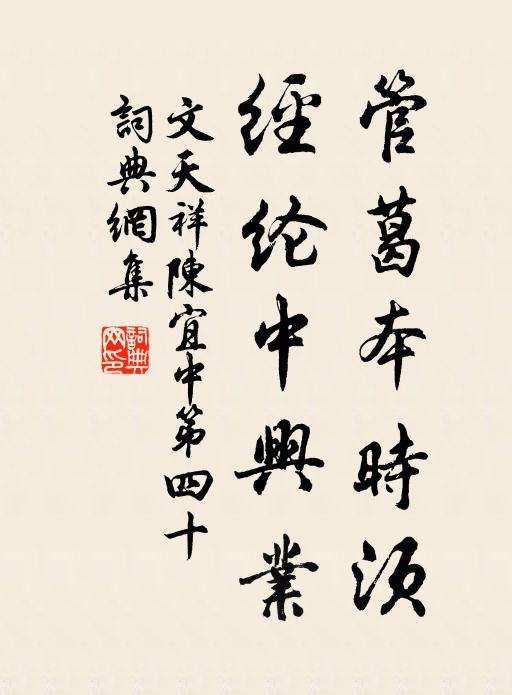 管葛本時須
經纶中興業
文天祥陳宜中第四十
詞典網集
詞典網印